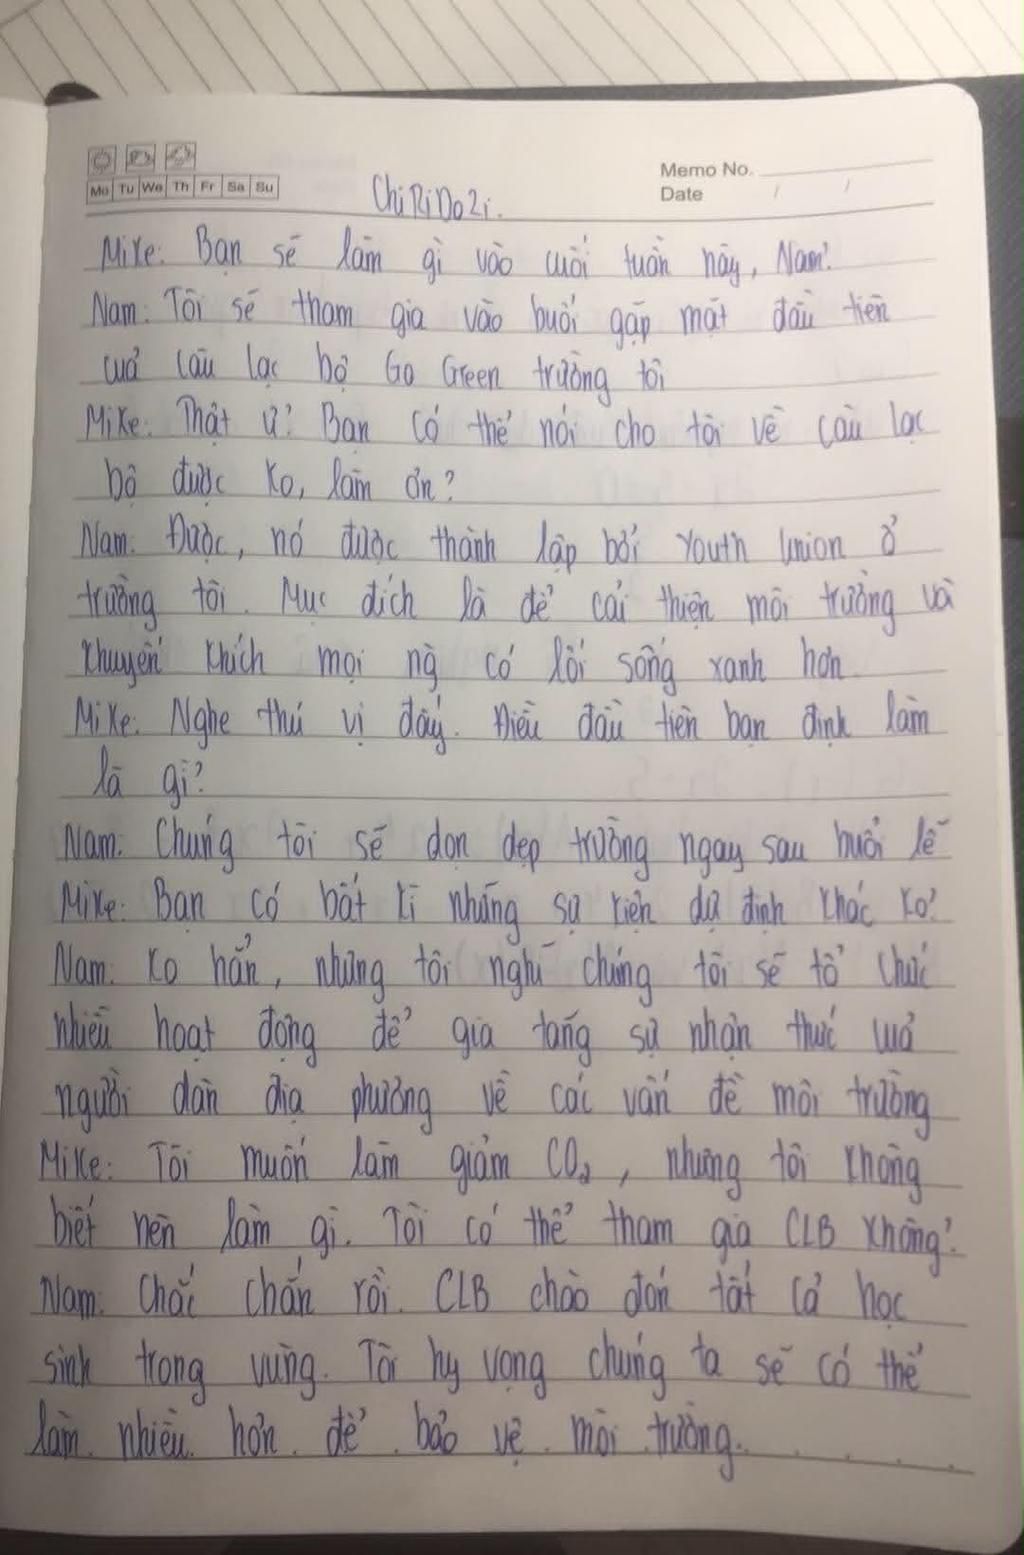 Memo No.
Mo Tu We Th Fr Sa Su
Date / /
ChiRiDo2i.
Mike: Bạn sẽ làm gì vào cuối tuần này, Nam?
Nam: Tôi sẽ tham gia vào buổi gặp mặt đầu tiên
cuả câu lạc bộ Go Green trường tôi
Mike: Thật ử? Bạn có thể nói cho tôi về câu lạc
bộ được ko, làm ơn?
Nam: Được, nó được thành lập bởi Youth Union ở
trường tôi. Mục đích là để cải thiện môi trường và
khuyến khích mọi ng` có lối sống xanh hơn.
Mike: Nghe thú vị đấy. Điều đầu tiên bạn định làm
là gì?
Nam: Chúng tôi sẽ dọn dẹp trường ngay sau buổi lễ
Mike: Bạn có bất kì những sự kiện dự định khác ko?
Nam: Ko hẳn, nhưng tôi nghĩ chúng tôi sẽ tổ chức
nhiều hoạt động để gia tăng sự nhận thức cuả
người dân địa phương về các vấn đề môi trường
Mike: Tôi muốn làm giảm CO₂, nhưng tôi không
biết nên làm gì. Tôi có thể tham gia CLB không?
Nam: Chắc chắn rồi. CLB chào đón tất cả học
sinh trong vùng. Tôi hy vọng chúng ta sẽ có thể
làm nhiều hơn để bảo vệ môi trường.